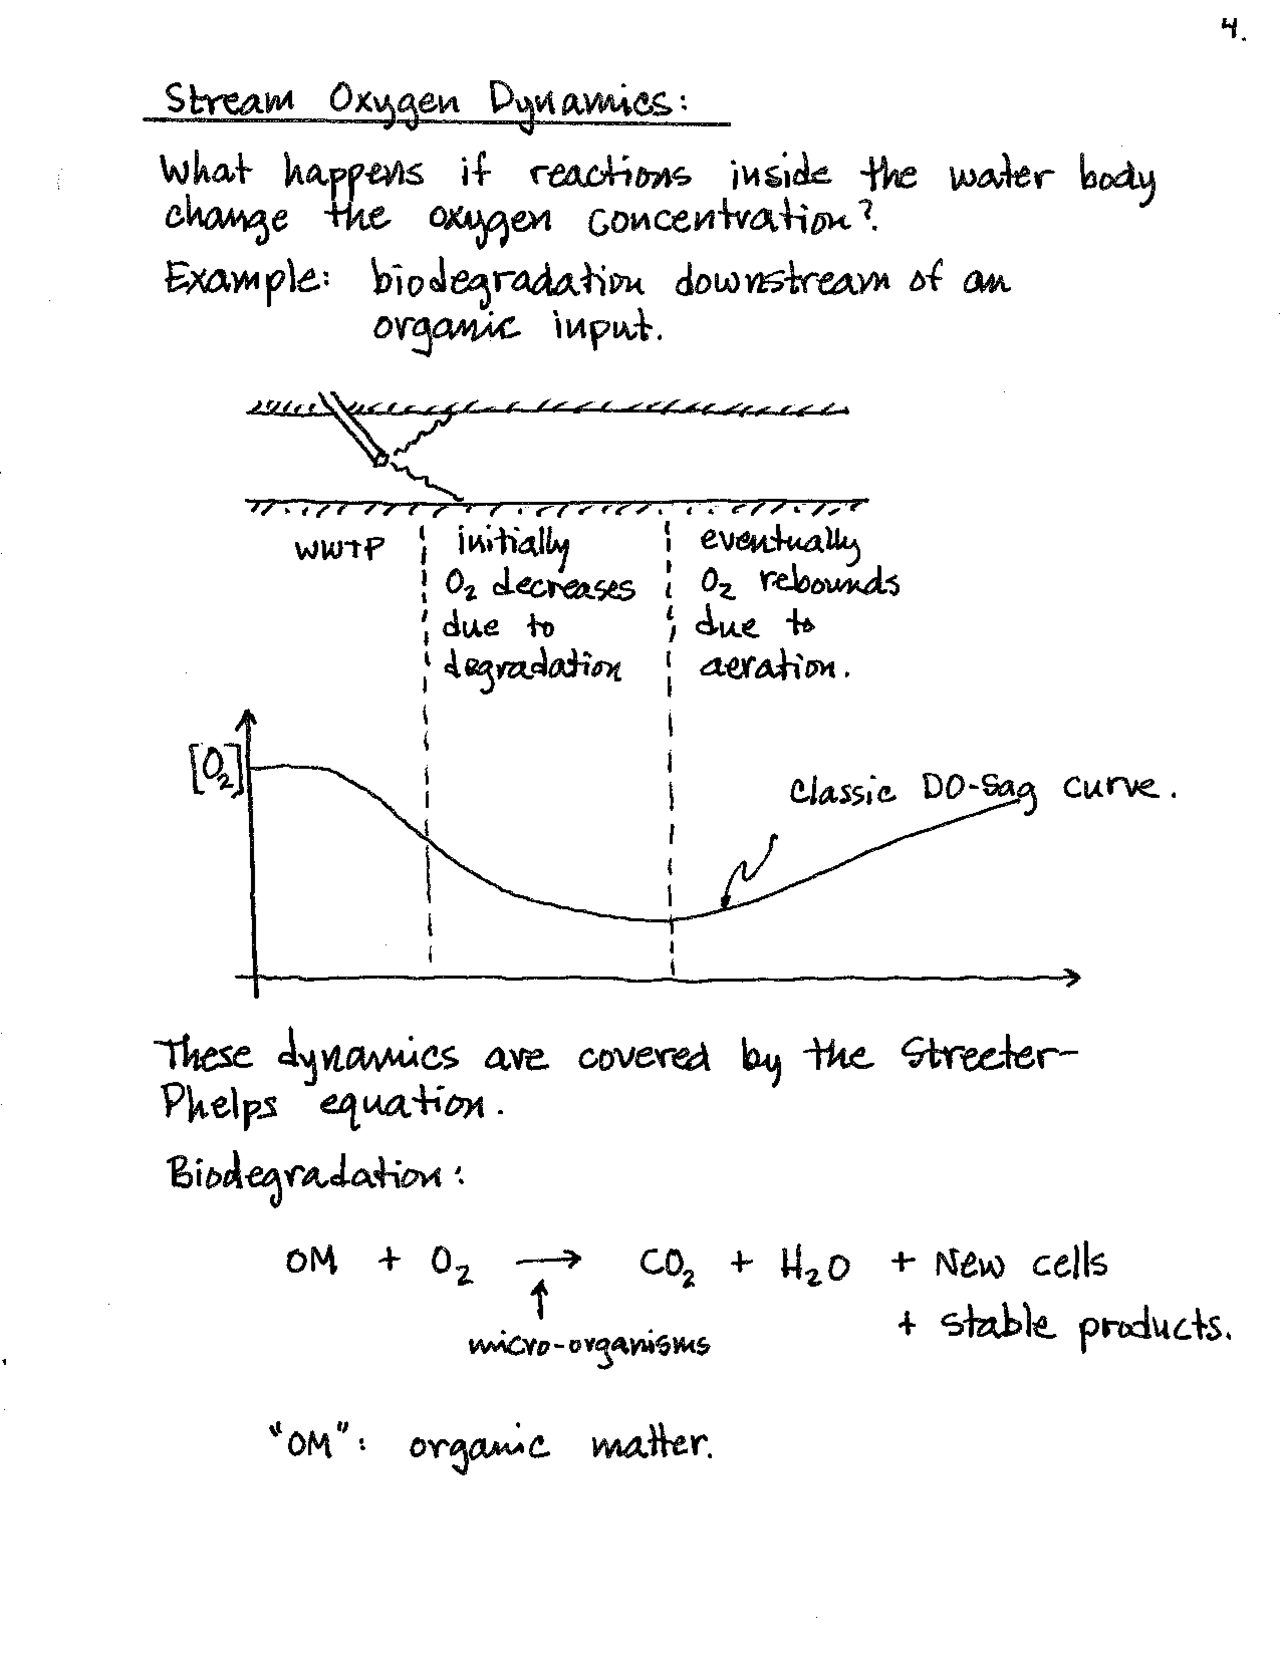 4.
Stream Oxygen Dynamics:
What happens if reactions inside the water body
change the oxygen concentration?
Example: biodegradation downstream of an
organic input.
WWTP
initially
O₂ decreases
due to
degradation
eventually
O₂ rebounds
due to
aeration.
[O₂]
Classic DO-Sag curve.
These dynamics are covered by the Streeter-
Phelps equation.
Biodegradation:
OM + O₂ → CO₂ + H₂O + New cells
↑ + stable products.
micro-organisms
"OM": organic matter.